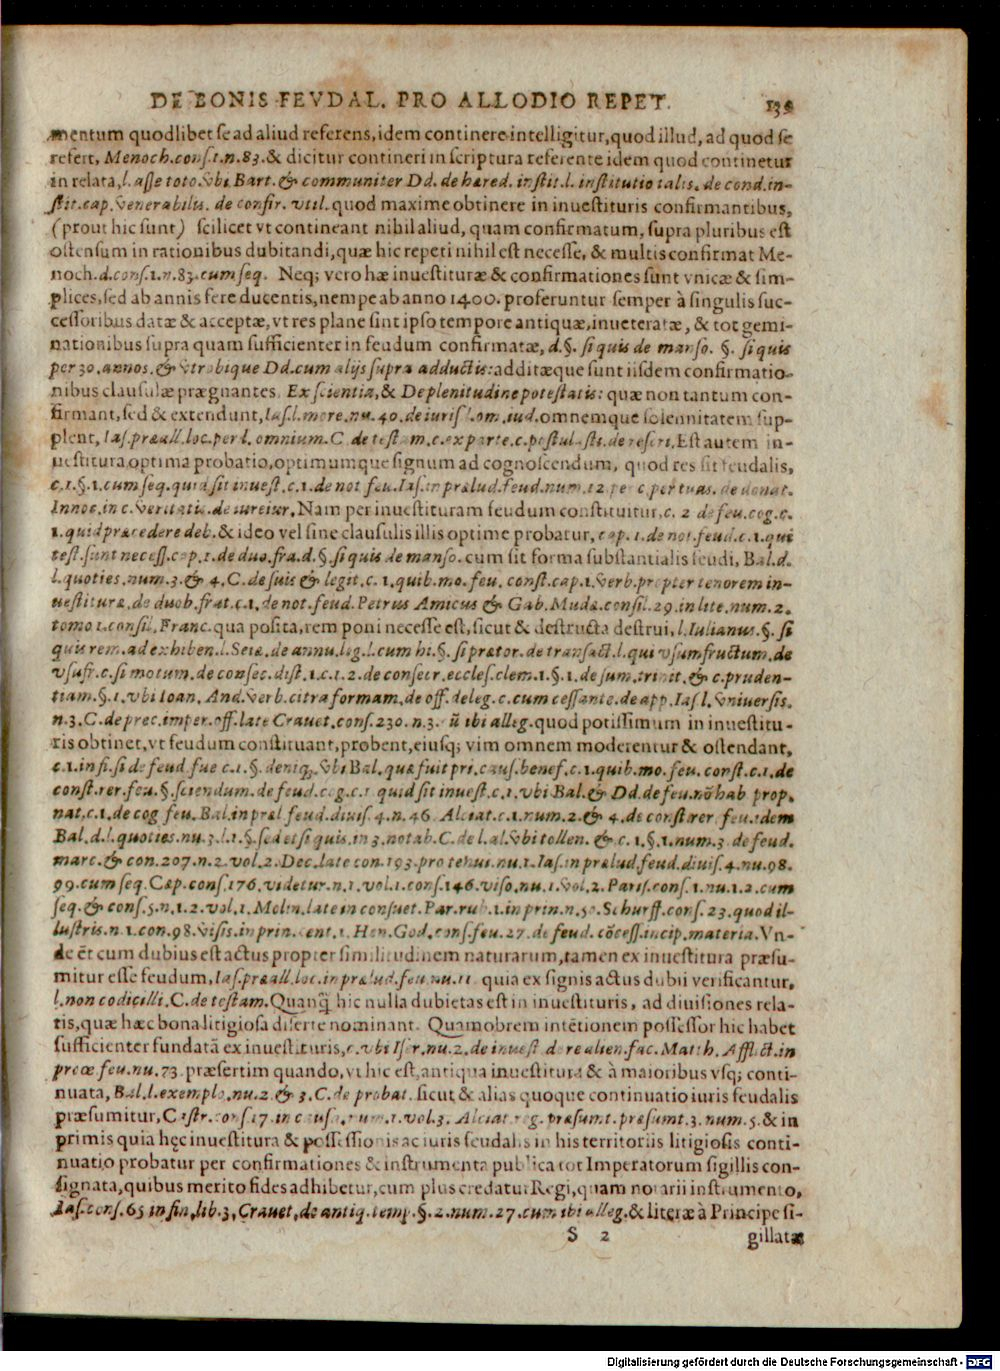 DE BONIS FEVDAL. PRO ALLODIO REPET. 139
mentum quodlibet se ad aliud referens, idem continere intelligitur, quod illud, ad quod se
refert, Menoch. cons. 1. n. 83. & dicitur contineri in scriptura referente idem quod continetur
in relata, l. asse toto. vbi Bart. & communiter Dd. de hæred. instit. l. institutio talis. de cond. in-
stit. cap. venerabilis. de confir. vtil. quod maxime obtinere in inuestituris confirmantibus,
(prout hic sunt) scilicet vt contineant nihil aliud, quam confirmatum, supra pluribus est
ostensum in rationibus dubitandi, quæ hic repeti nihil est necesse, & multis confirmat Me-
noch. d. cons. 1. n. 83. cum seq. Neq; vero hæ inuestituræ & confirmationes sunt vnicæ & sim-
plices, sed ab annis fere ducentis, nempe ab anno 1400. proferuntur semper à singulis suc-
cessoribus datæ & acceptæ, vt res plane sint ipso tempore antiquæ, inueteratæ, & tot gemi-
nationibus supra quam sufficienter in feudum confirmatæ, d. §. si quis de manso. §. si quis
per 30. annos. & vtrobique Dd. cum alijs supra adductis: additæque sunt iisdem confirmatio-
nibus clausulæ prægnantes. Ex scientia, & De plenitudine potestatis: quæ non tantum con-
firmant, sed & extendunt, Ias. l. more. nu. 40. de iuris. om. iud. omnemque solennitatem sup-
plent, Ias. præall. loc. per l. omnium. C. de testam. c. ex parte. c. postulasti. de rescri. Est autem in-
uestitura optima probatio, optimumque signum ad cognoscendum, quod res sit feudalis,
c. 1. §. 1. cum seq. quid sit inuest. c. 1. de not. feu. Ias. in prælud. feud. num. 12 per c. per tuas. de donat.
Innoc. in c. veritatis. de iureiur. Nam per inuestituram feudum constituitur, c. 2 de feu. cog. c.
1. quid præcedere deb. & ideo vel sine clausulis illis optime probatur, cap. 1. de not. feud. c. 1. qui
test. sunt necess. cap. 1. de duo. fra. d. §. si quis de manso. cum sit forma substantialis feudi, Bal. d.
l. quoties. num. 3. & 4. C. de suis & legit. c. 1. quib. mo. feu. const. cap. 1. verb. propter tenorem in-
uestituræ. de duob. frat. c. 1. de not. feud. Petrus Amicus & Gab. Mudæ. consil. 29. in lite. num. 2.
tomo 1. consil. Franc. qua posita, rem poni necesse est, sicut & destructa destrui, l. Iulianus. §. si
quis rem. ad exhiben. l. Seiæ. de annu. leg. l. cum hi. §. si prætor. de transact. l. qui vsumfructum. de
vsufr. c. si motum. de consec. dist. 1. c. 1. 2. de consecr. eccles. clem. 1. §. 1. de sum. trinit. & c. pruden-
tiam. §. 1. vbi Ioan. And. verb. citra formam. de off. deleg. c. cum cessante. de app. Ias. l. vniuersis.
n. 3. C. de prec. imper. off. late Crauet. cons. 230. n. 3. ibi alleg. quod potissimum in inuestitu-
ris obtinet, vt feudum constituant, probent, eiusq; vim omnem moderentur & ostendant,
c. 1. in fi. si de feud. fue c. 1. §. deniq; vbi Bal. quæ fuit pri. caus. benef. c. 1. quib. mo. feu. const. c. 1. de
const. rer. feu. §. sciendum. de feud. cog. c. 1 quid sit inuest. c. 1. vbi Bal. & Dd. de feu. nō hab prop.
nat. c. 1. de cog feu. Bal. in præl. feud. diuis. 4. n. 46. Alciat. c. 1. num. 2. & 4. de const. rer. feu. idem
Bal. d. l. quoties. nu. 3. l. 1. §. sed et si quis. in 3. notab. C. de l. al. vbi tollen. & c. 1. §. 1. num. 3. de feud.
marc. & con. 207. n. 2. vol. 2. Dec. late con. 193. pro tenui. nu. 1. Ias. in prælud. feud. diuis. 4. nu. 98.
99. cum seq. Cap. cons. 176. videtur. n. 1. vol. 1. cons. 146. viso. nu. 1. vol. 2. Paris. cons. 1. nu. 1. 2. cum
seq. & cons. 5. n. 1. 2. vol. 1. Molin. late in consuet. Par. rub. 1. in prin. n. 50. Schurff. cons. 23. quod il-
lustris. n. 1. con. 98. visis. in prin. cent. 1. Hen. God. cons. feu. 27. de feud. cōcess. in cip. materia. Vn-
de ēt cum dubius est actus propter similitudinem naturarum, tamen ex inuestitura præsu-
mitur esse feudum, Ias. præall. loc. in prælud. feu nu. 11 quia ex signis actus dubii verificantur,
l. non codicilli. C. de testam. Quanq̃ hic nulla dubietas est in inuestituris, ad diuisiones rela-
tis, quæ hæc bona litigiosa diserte nominant. Quamobrem intētionem possessor hic habet
sufficienter fundatā ex inuestituris, c. vbi Iser. nu. 2. de inuest de re alien. fac. Matth. Afflict. in
præœ feu. nu. 73. præsertim quando, vt hic est, antiqua inuestitura & à maioribus vsq; conti-
nuata, Bal. l. exemplo. nu. 2 & 3. C. de probat. sicut & alias quoque continuatio iuris feudalis
præsumitur, Castr. cons 17. in causa. num. 1. vol. 3. Alciat reg. præsumt. præsumt. 3. num. 5. & in
primis quia hęc inuestitura & possessionis ac iuris feudalis in his territoriis litigiosis conti-
nuatio probatur per confirmationes & instrumenta publica tot Imperatorum sigillis con-
signata, quibus merito fides adhibetur, cum plus credatur Regi, quam notarii instrumento,
Ias. cons. 65 in fin. lib. 3, Crauet. de antiq. temp. §. 2. num. 27. cum ibi alleg. & literæ à Principe si-
S 2 gillatæ
Digitalisierung gefördert durch die Deutsche Forschungsgemeinschaft - DFG